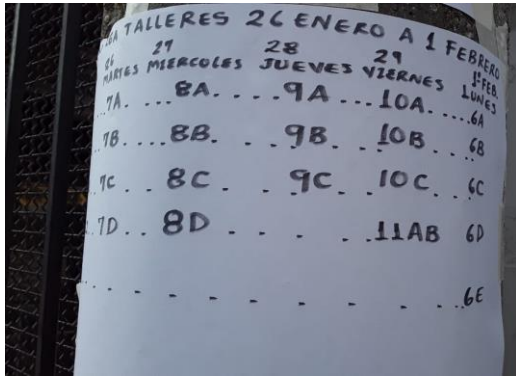 TALLERES 26 ENERO A 1 FEBRERO
26 27 28 29 1º FEB.
MARTES MIERCOLES JUEVES VIERNES LUNES
7A. ...8A. ... .9A ...10A. ....6A
.7B. ...8B. . . .9B. .10B. . .6B
..7C . . 8C . . . 9C. . .10C. . .6C
.7D. . 8D . . . . . .11AB 6D
. . . . . . . . . . ..6E